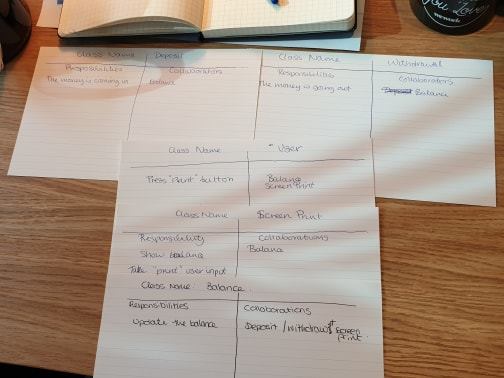 Class Name Deposit
Responsibilities Collaborators
The money is coming in Balance
Class Name Withdrawal
Responsibilities Collaborators
The money is going out Deposit Balance
Class Name User
Press "Print" button Balance
Screen Print
Class Name Screen Print
Responsibility Collaborations
Show balance Balance
Take "print" user input
Class Name: Balance
Responsibilities Collaborations
Update the balance Deposit / Withdraw Screen
print.
You